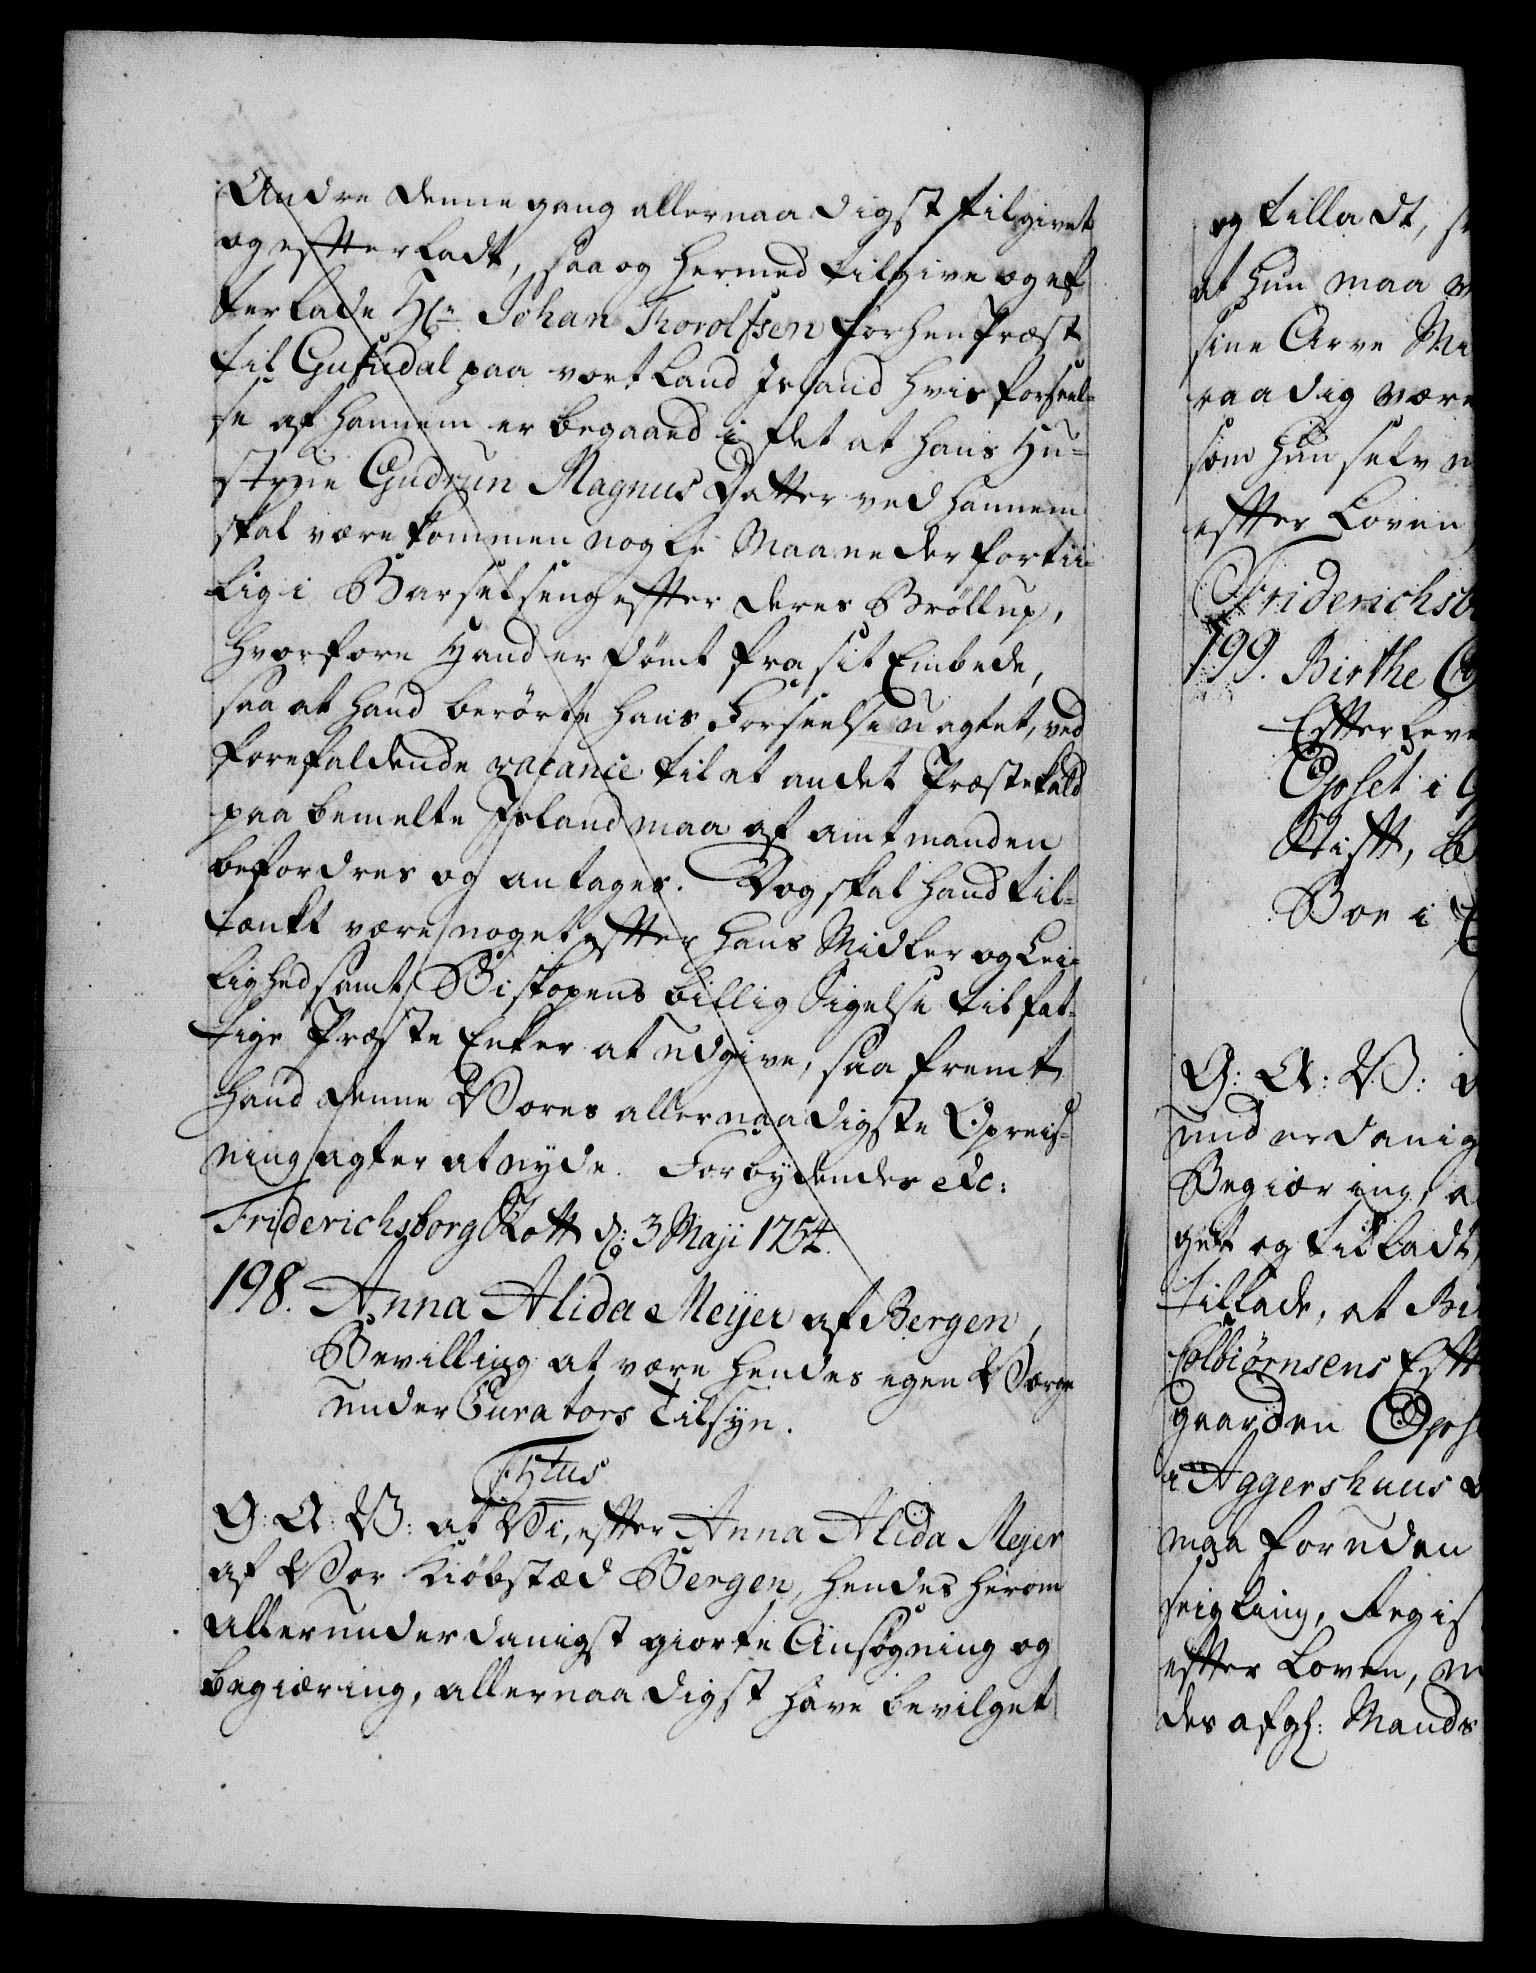 Andre denne gang allernaadigst tilgivet
og efterladt, saa og hermed tilgive og ef
terlade Hr. Johan Thorolfsen forhen Præst
til Gufudal paa vort Land Island hvis forseel-
se af hannem er begaaed i det at hans Hu-
strue Gudrun Magnus Datter ved hannem
skal være kommen nogle Maaneder fortii-
lig i Barselseng efter deres Bröllup,
hvorfore Hand er dömt fra sit Embede,
saa at hand berörte hans Forseelse uagtet, ved
forefaldende vacance til et andet Præstekald
paa bemelte Island maa af amtmanden
befordres og antages. Dog skal hand til-
tænkt være noget efter hans Midler og Lei-
lighed samt Biskopens billig Sigelse til fat-
tige Præste Enker at udgive, saafremt
hand denne Vores allernaadigste Opreis-
ning agter at nyde. Forbydendes etc:
Friderichsborg Slott d: 3 Maji 1754.
198. Anna Alida Meyer af Bergen,
Bevilling at være hendes egen Værge
under Curators Tilsyn.
G: A: V: at Vi, efter Anna Alida Meyer
af Vor Kiöbstæd Bergen, hendes herom
allerunderdanigst giorte Ansögning og
begiæring, allernaadigst have bevilget
og tilladt,
at hun maa
sine Arve Mi
raadig være
som hun selv
efter Loven
Friderichsb
199. Birthe
Efterleve
Opset i
Stift,
Boe i
G: A: V:
underdanig
Begiæring, a
get og tilladt,
tillade, at Bi
Colbiörnsens Eft
gaarden Ops
i Aggershuus
maa foruden
seigling, Regis
efter Loven,
des afgl: Mands